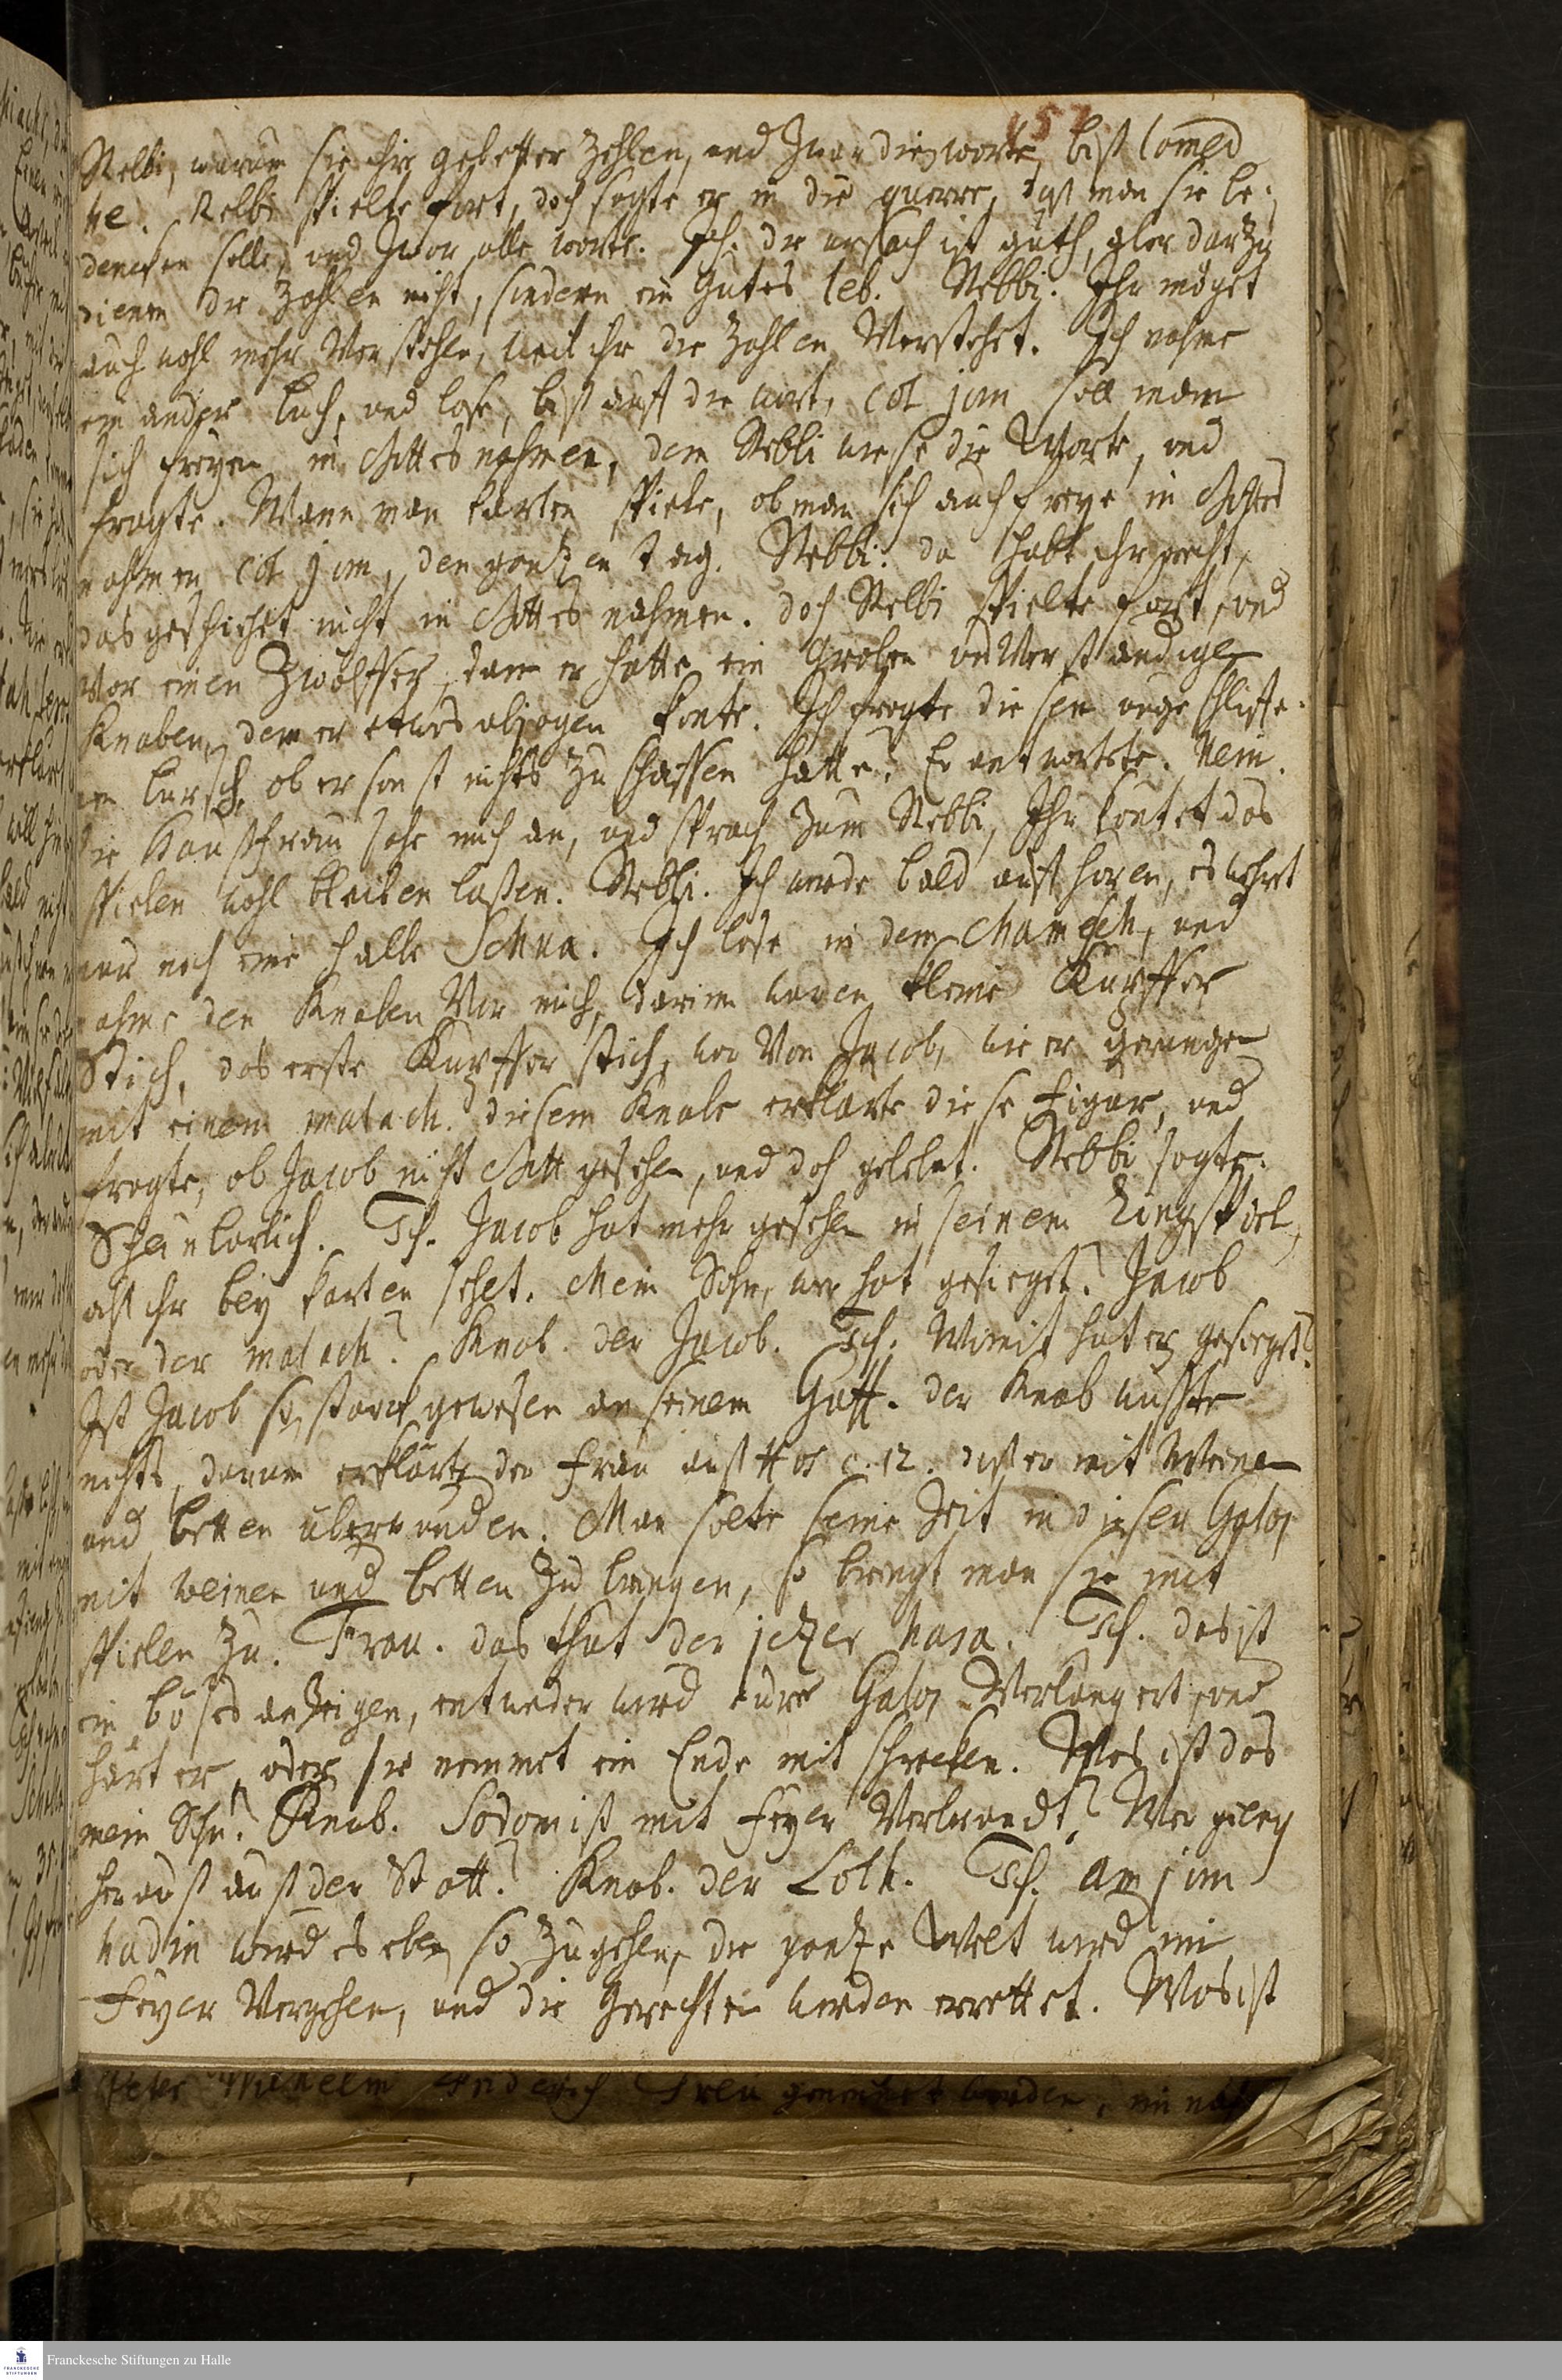 157
Rebbi, warum sie ihre gebetter zehlen, und zwar die worte, biß lomed
he. Rebbi spielte fort, doch sagte er in die querre, daß man sie be-
dencken solle, und zwar alle worte. Ich. die ursach ist guth, aber darzu
dienen die Zahlen nicht, sondern ein gutes leb. Rebbi. Ihr möget
auch wohl mehr Verstehen, weil ihr die Zahlen Verstehet. Ich nahme
ein ander buch, und lase, biß auff die wort, col jom soll mann
sich freyen in Gottes nahmen, dem Rebbi wiese die Worte, und
fragte. Wann man karten spiele, ob man sich auch freye in Gottes
nahmen col jom, den gantzen tag. Rebbi: da habt ihr recht,
das geschiehet nicht in Gottes nahmen. doch Rebbi spielte fort, und
vor einen Zwölffer, dann er hatte ein groben unVerständigen
Knaben, dem er etwas abjagen konte. Ich fragte diesen ungeschliffe-
nen bursch, ob er sonst nichts zu schaffen hatte? Er antwortete. Nein.
die Haußfrau sahe mich an, und sprach zum Rebbi, Ihr kontet das
spielen wohl bleiben laßen. Rebbi. Ich werde bald auffhoren, es wehret
nur noch eine halbe Schua. Ich lase in dem chamesch, und
nahme den Knaben Vor mich, darinn waren kleine Kupffer
Stich, das erste Kupfferstich, war Von Jacob, wie er gerungen
mit einem malach. diesem Knabe erklärte diese Figur, und
fragte, ob Jacob nicht Gott gesehen, und doch gelebet. Rebbi sagte.
Scheinbarlich. Ich. Jacob hat mehr gesehen in seinem Ringspiel,
alß ihr bey karten sehet. Mein Sohn, wer hat gesieget? Jacob
oder der malach? Knab. der Jacob. Ich. Womit hat er gesieget?
Ist Jacob so starck gewesen an seinem Guff. der Knab wußte
nichts, darum erklärte der Frau auß Hos c. 12. daß er mit Weinen
und betten überwunden. Man solte seine Zeit in dieser Galos
mit weinen und betten zu bringen, so bringt man sie mit
spielen zu. Frau. das thut der jetzer hara. Ich. das ist
ein böses anzeigen, entweder wird eure Galos Verlangert, und
härter, oder sie nemmet ein Ende mit schrecken. Was ist das
mein Sohn? Knab. Sodom ist mit Feyer Verbrandt? Wer gieng
herauß auß der Statt? Knab. der Loth. Ich. am jom
hadin wird es eben so zugehen, die gantze Welt wird im
Feyer Vergehen, und die Gerechten werden errettet. Was ist
Franckesche Stiftungen zu Halle